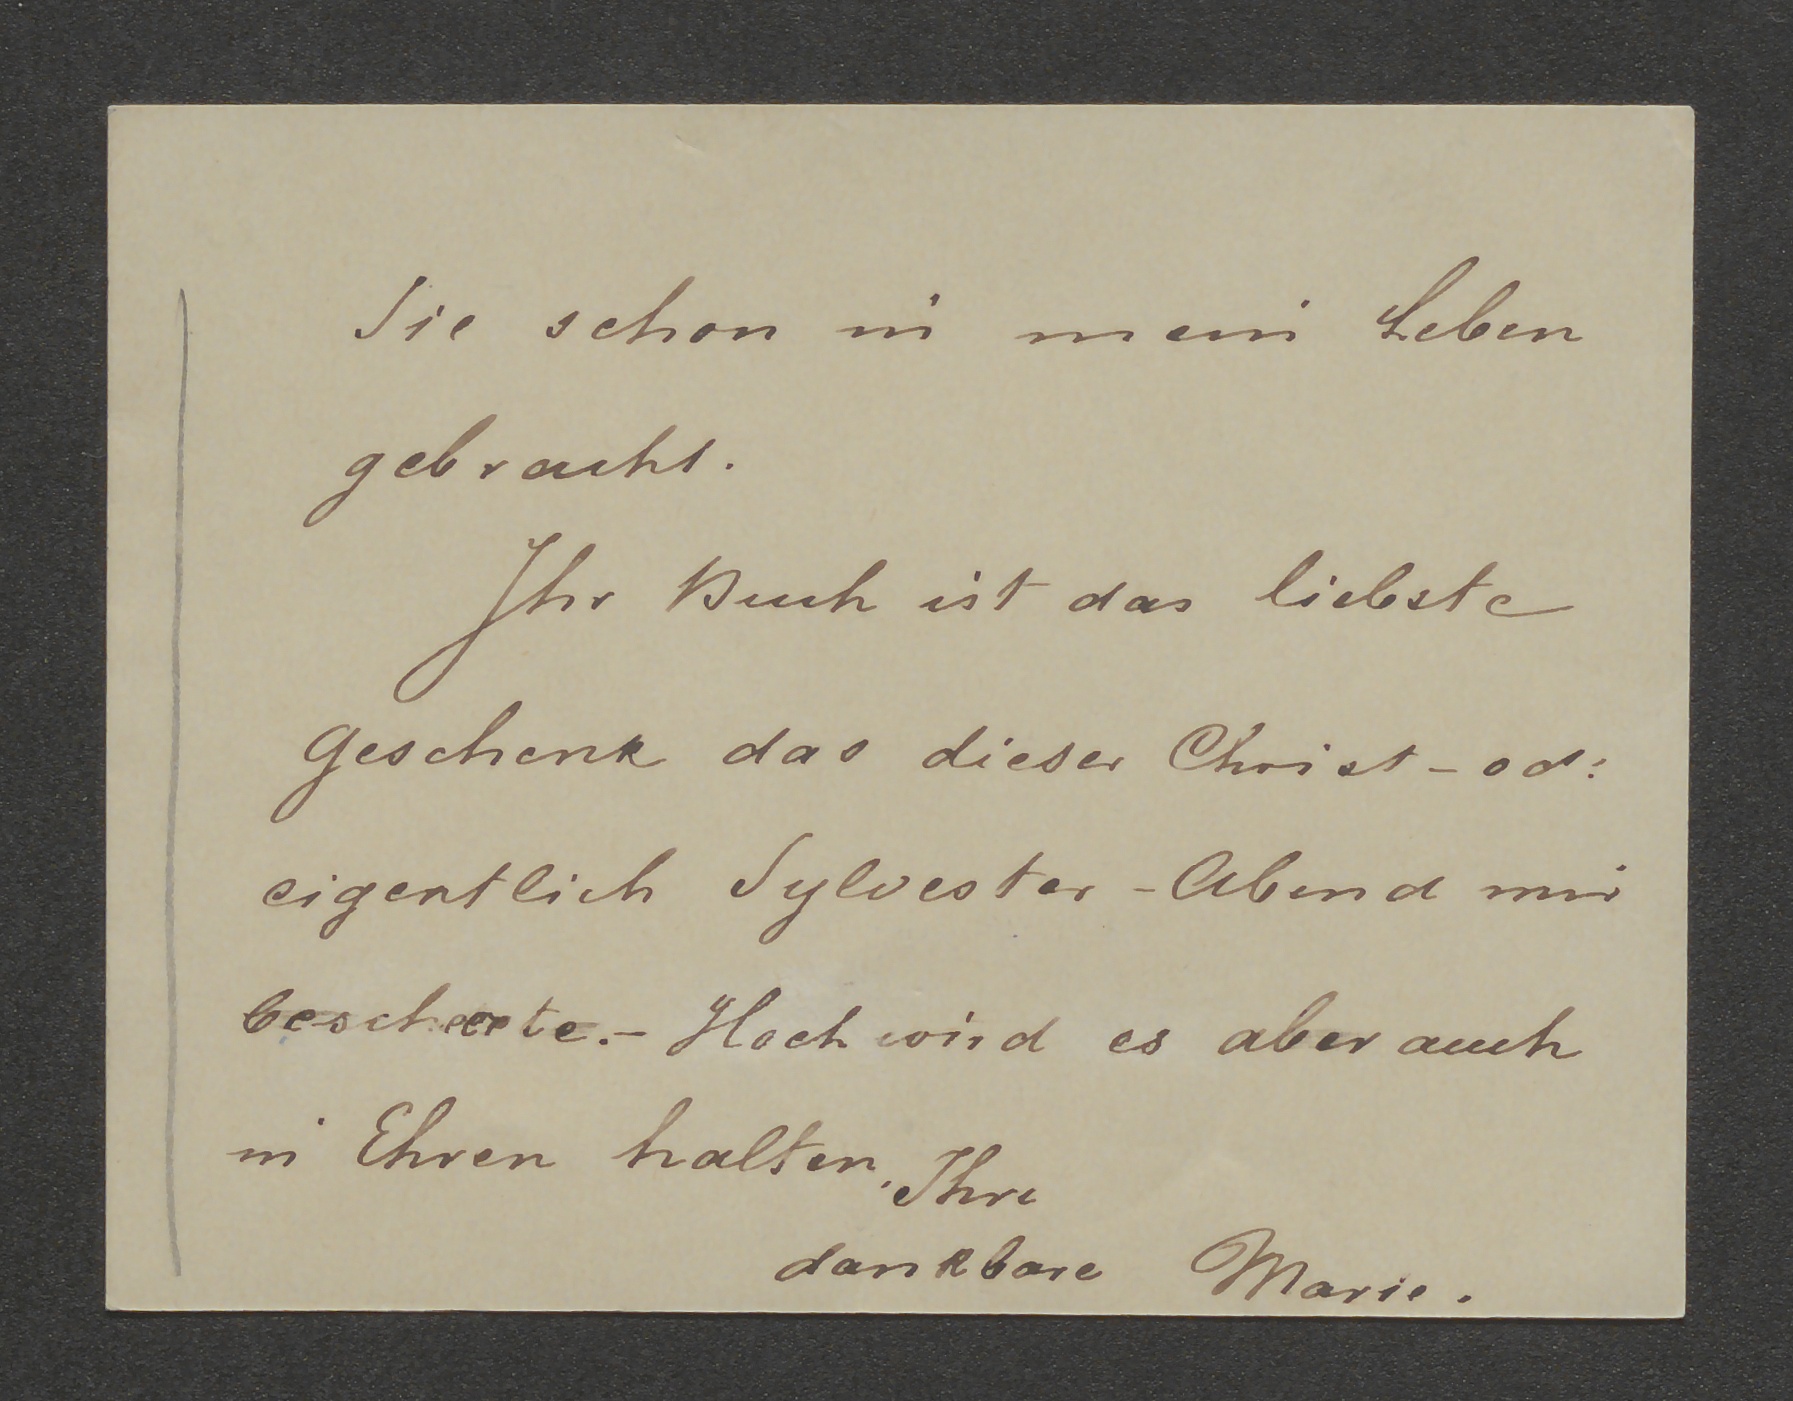 Sie schon in mein Leben
gebracht.
Ihr Buch ist das liebste
Geschenk das dieser Christ-od:
eigentlich Sylvester-Abend mir
bescheerte.- Hoch wird es aber auch
in Ehren halten. Ihre
dankbare Marie.